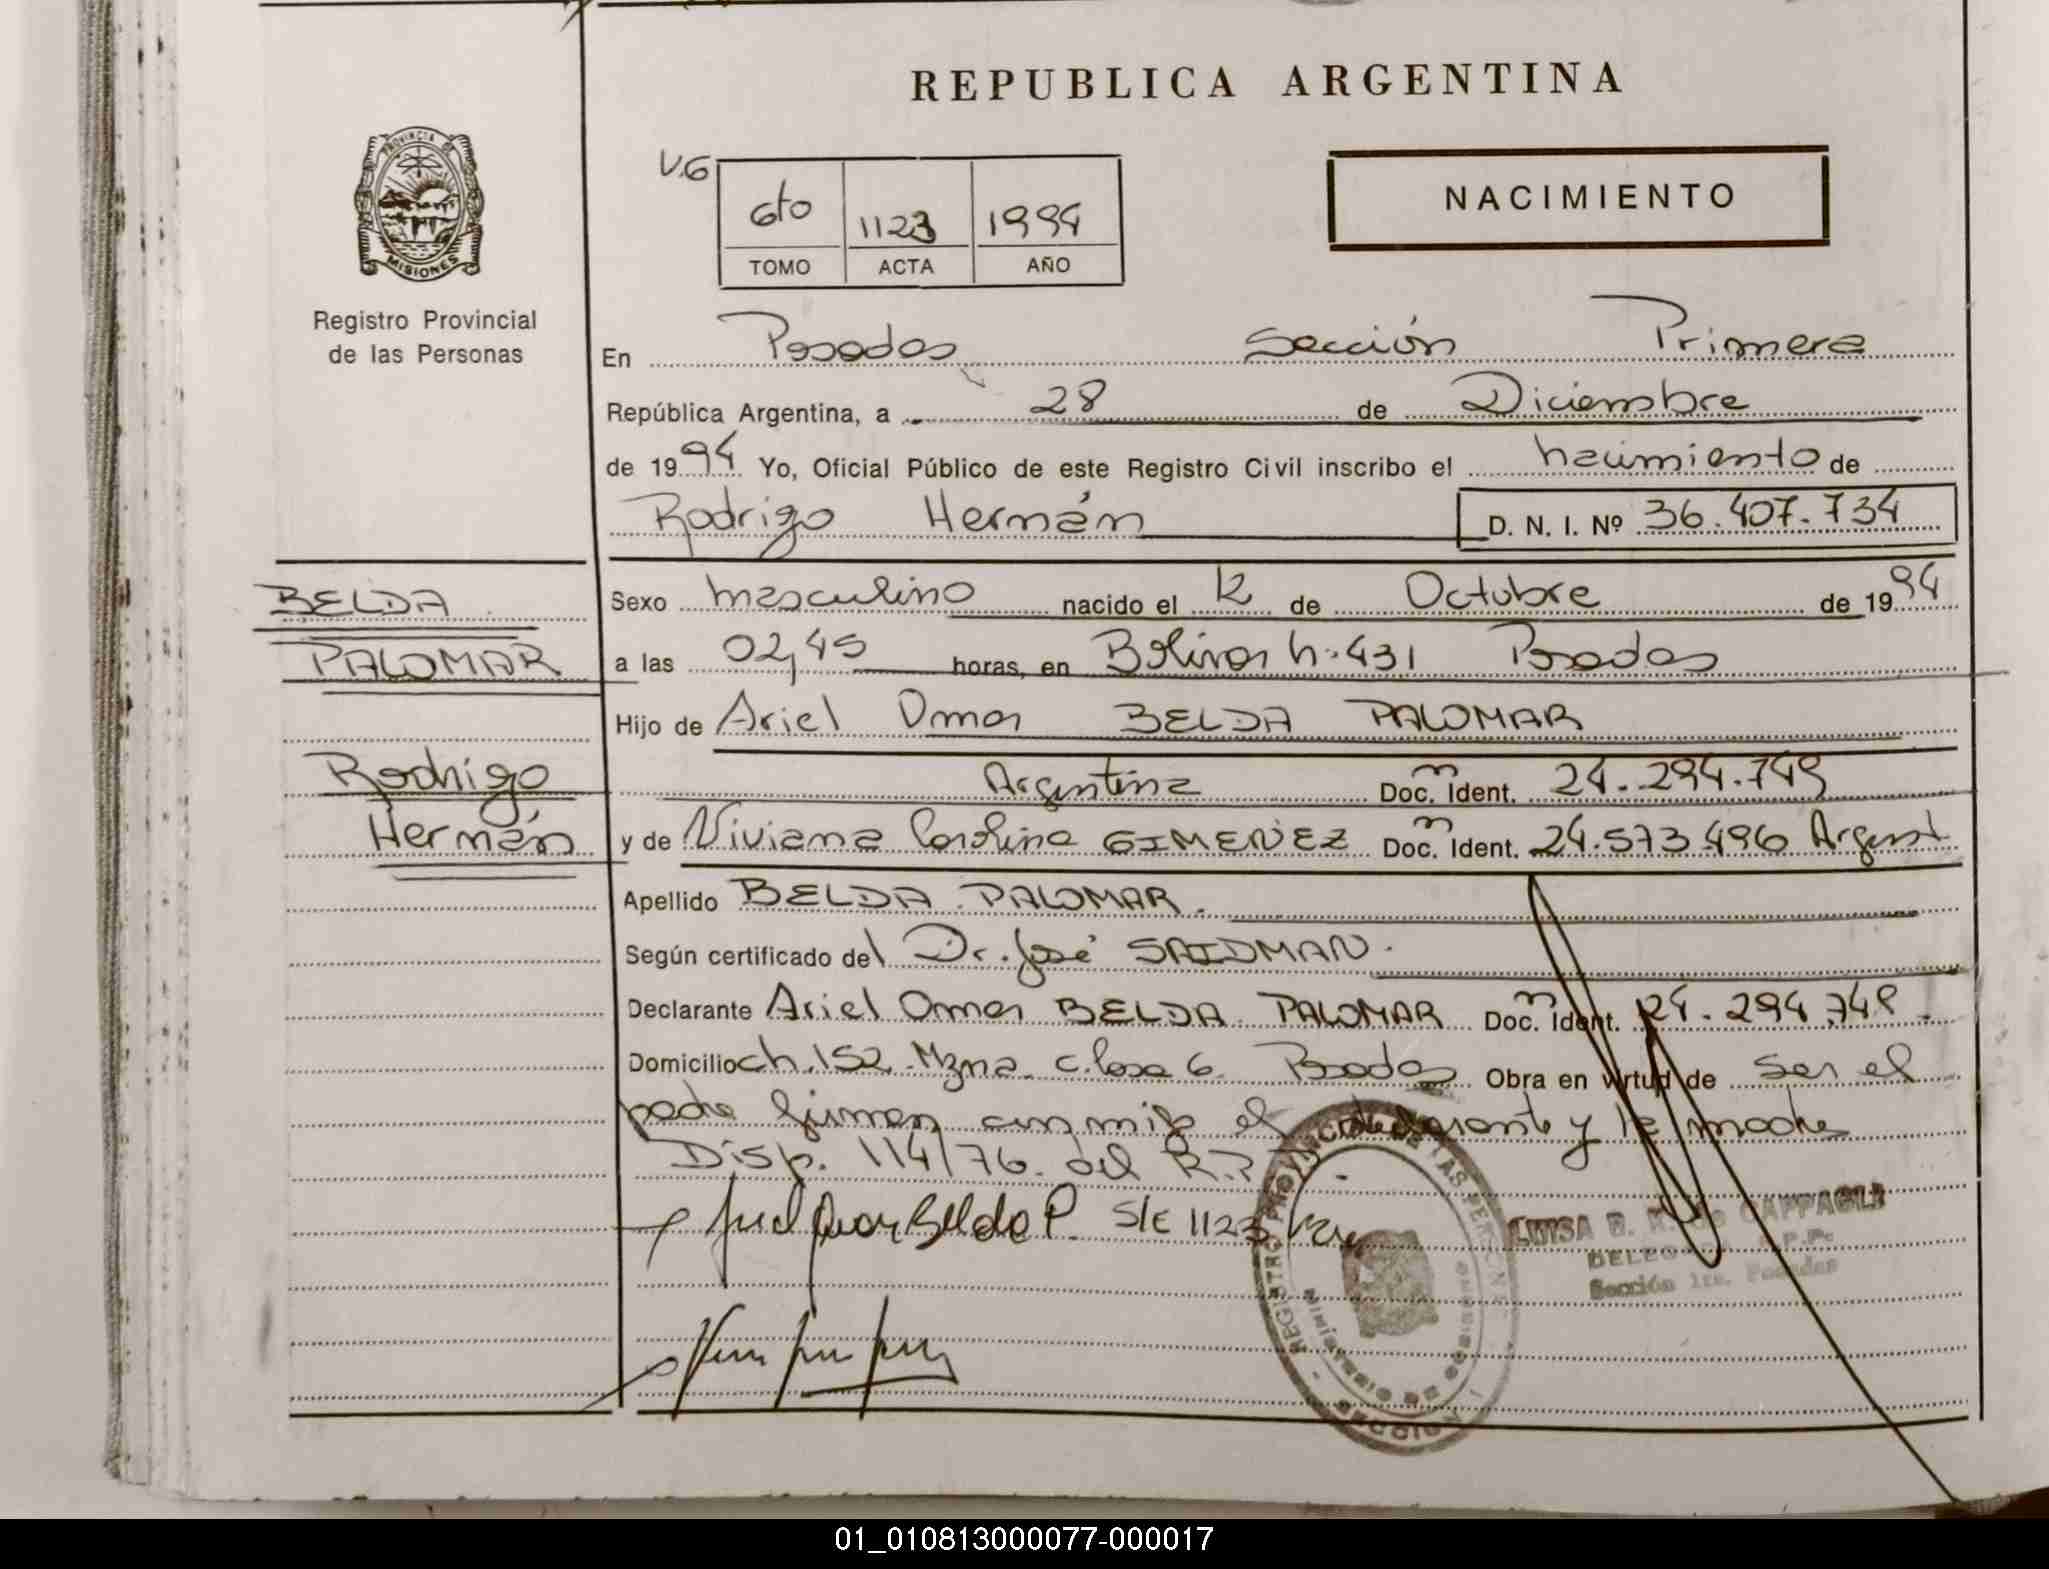 REPUBLICA ARGENTINA
PROVINCIA DE
MISIONES
Registro Provincial
de las Personas
V.G
6to 1123 1994
TOMO ACTA AÑO
NACIMIENTO
En Posadas Sección Primera
República Argentina, a 28 de Diciembre
de 1994 Yo, Oficial Público de este Registro Civil inscribo el nacimiento de
Rodrigo Hernán D. N. I. Nº 36.407.734
BELDA
PALOMAR
Rodrigo
Hernán
Sexo masculino nacido el 12 de Octubre de 1994
a las 02,45 horas, en Bolivar n. 431 Posadas
Hijo de Ariel Omar BELDA PALOMAR
Argentina Doc. Ident. 24.294.749
y de Viviana Carolina GIMENEZ Doc. Ident. 24.573.496 Argent
Apellido BELDA PALOMAR.
Según certificado del Dr. José SAIDMAN.
Declarante Ariel Omar BELDA PALOMAR Doc. Ident. 24.294.749.
Domicilio ch. 152. Mzna. c. casa 6 Posadas Obra en virtud de ser el
padre firman conmigo el declarante y la madre
Disp. 114/76. del R.P
S/E 1123
REGISTRO PROVINCIAL DE LAS PERSONAS
MINISTERIO DE GOBIERNO
LUISA B. R. de CAPPAGLI
DELEGADA R.P.P.
Sección 1ra. Posadas
01_010813000077-000017